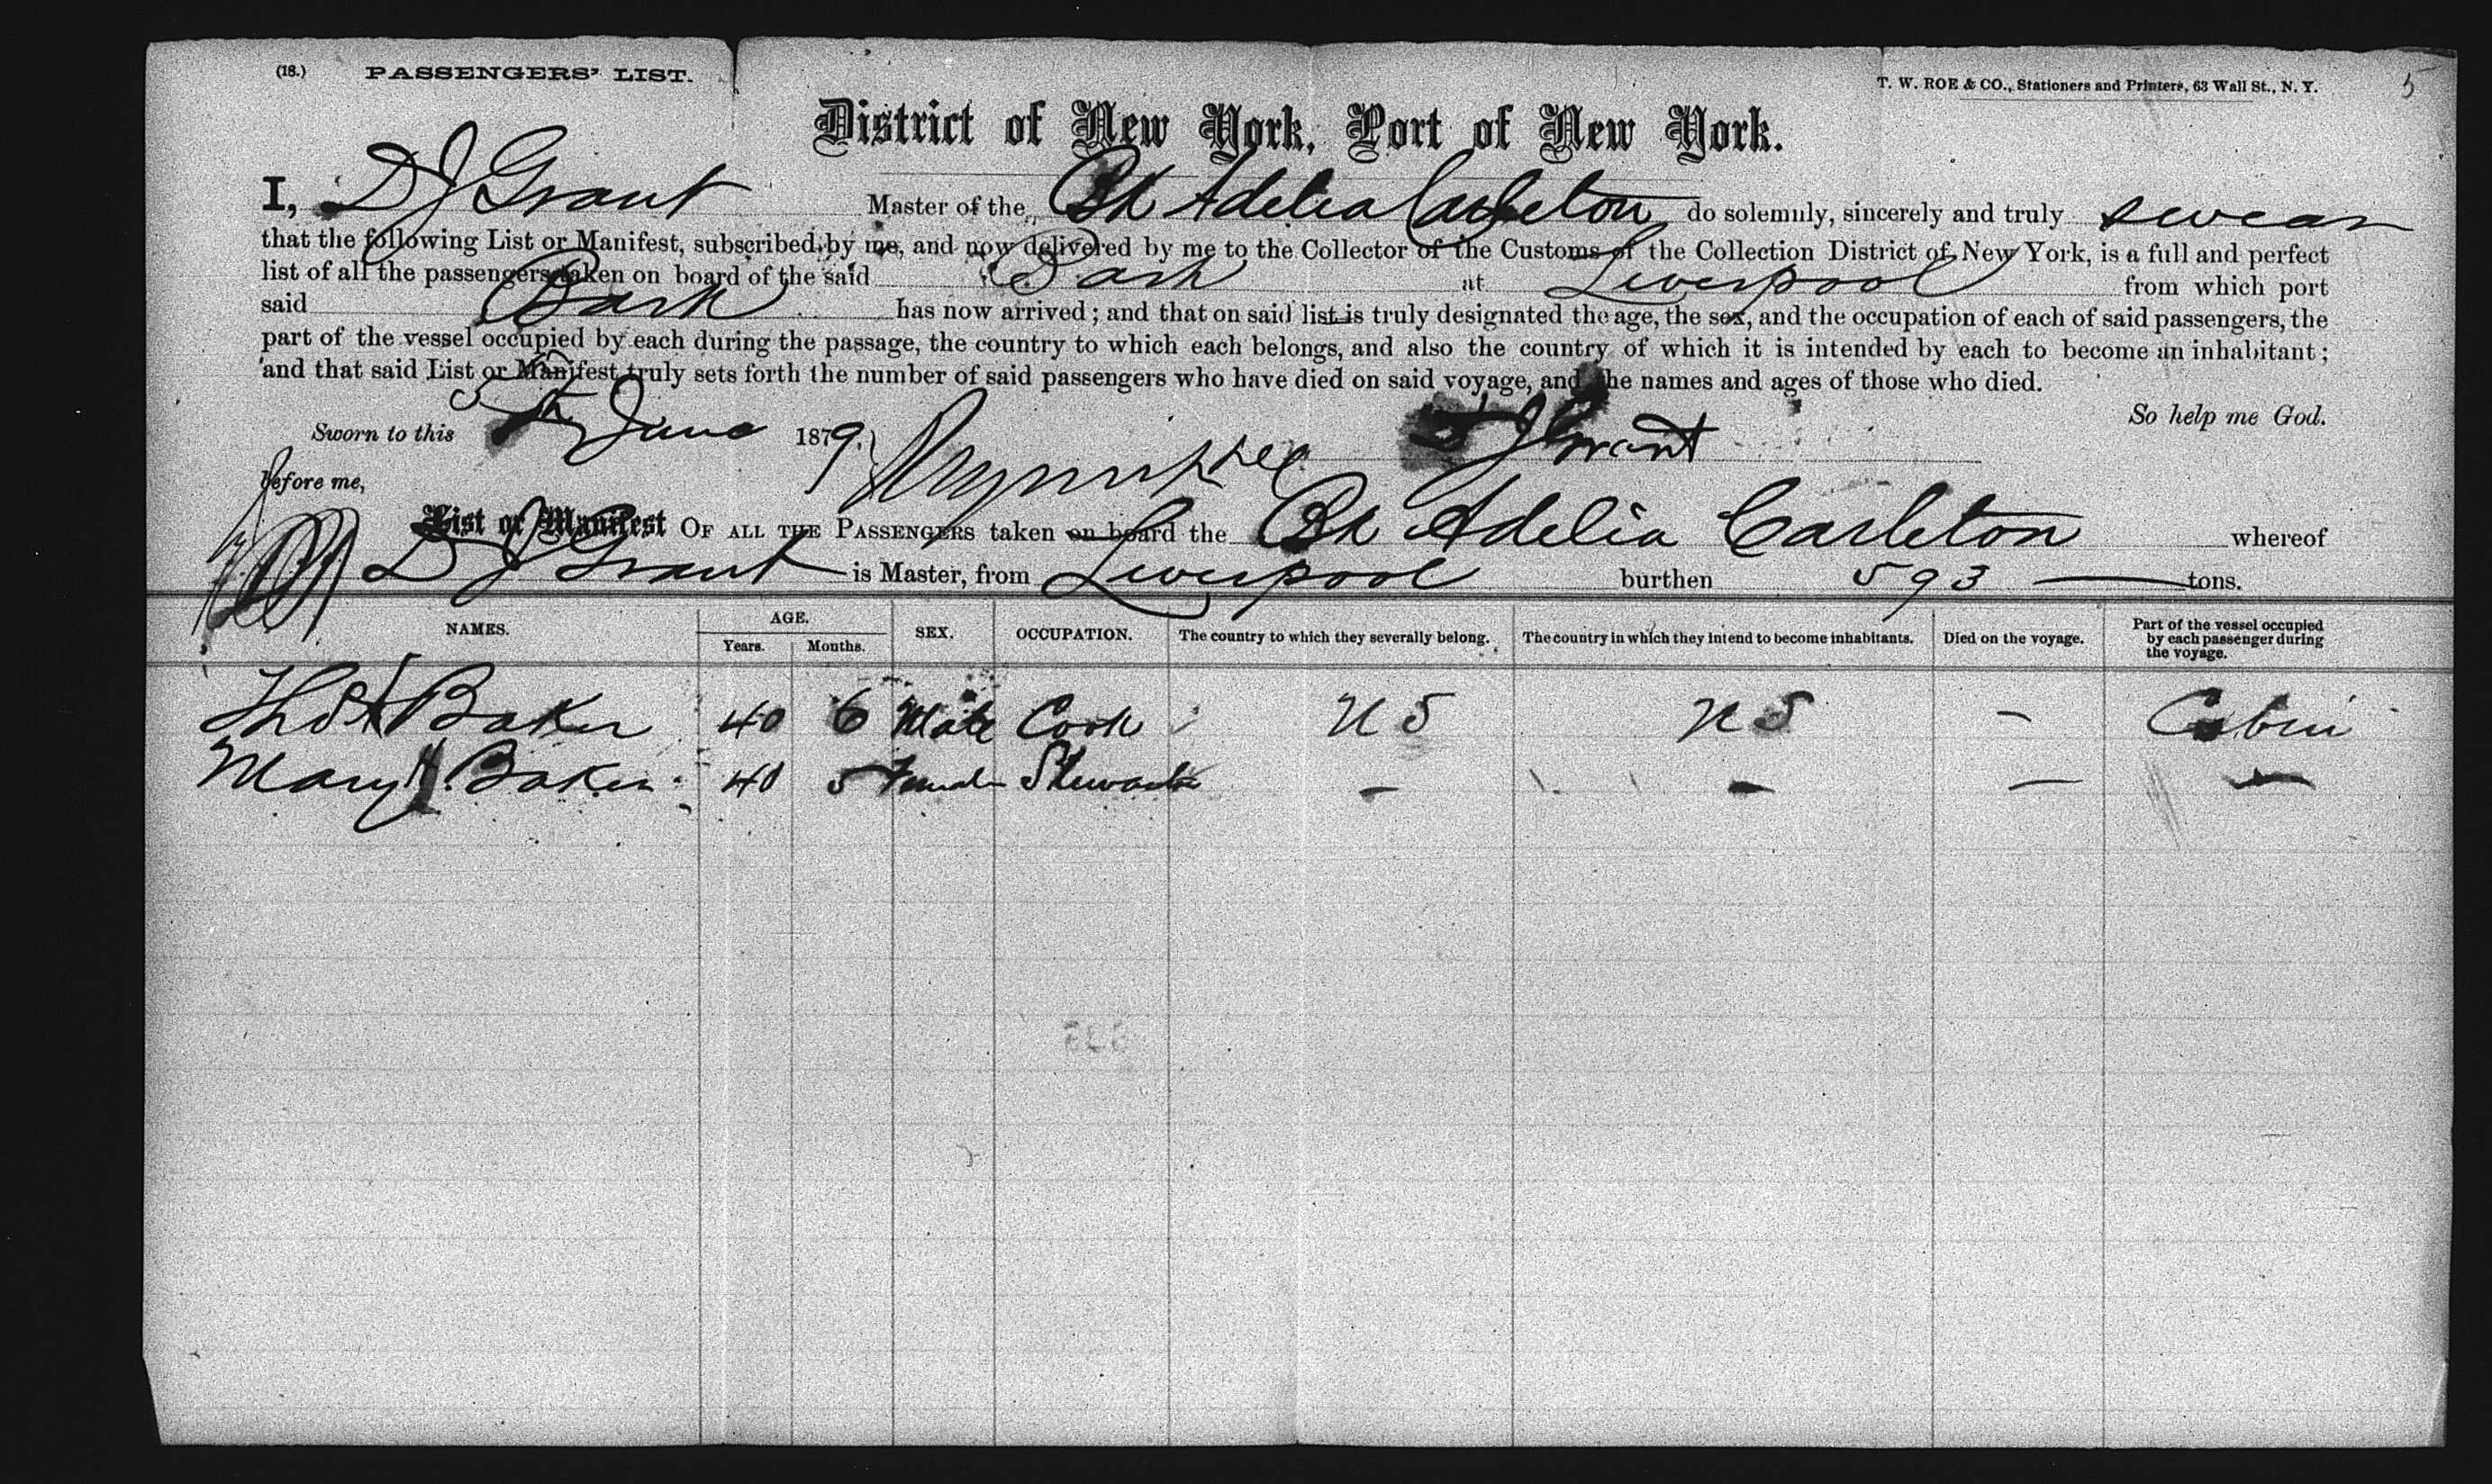 (18.) PASSENGERS' LIST.
T. W. ROE & CO., Stationers and Printers, 63 Wall St., N. Y. 5
District of New York, Port of New York.
I, D J Grant Master of the Bk Adelia Carleton do solemnly, sincerely and truly swear
that the following List or Manifest, subscribed by me, and now delivered by me to the Collector of the Customs of the Collection District of New York, is a full and perfect
list of all the passengers taken on board of the said Bark at Liverpool from which port
said Bark has now arrived; and that on said list is truly designated the age, the sex, and the occupation of each of said passengers, the
part of the vessel occupied by each during the passage, the country to which each belongs, and also the country of which it is intended by each to become an inhabitant;
and that said List or Manifest truly sets forth the number of said passengers who have died on said voyage, and the names and ages of those who died.
So help me God.
Sworn to this 5th June 1879. D J Grant
before me,
List or Manifest OF ALL THE PASSENGERS taken on board the Bk Adelia Carleton whereof
D J Grant is Master, from Liverpool burthen 593 tons.
NAMES. AGE. Years. Months. SEX. OCCUPATION. The country to which they severally belong. The country in which they intend to become inhabitants. Died on the voyage. Part of the vessel occupied by each passenger during the voyage.
Thos Baker 40 6 Male Cook U S U S – Cabin
Mary Baker 40 5 Female – – – –